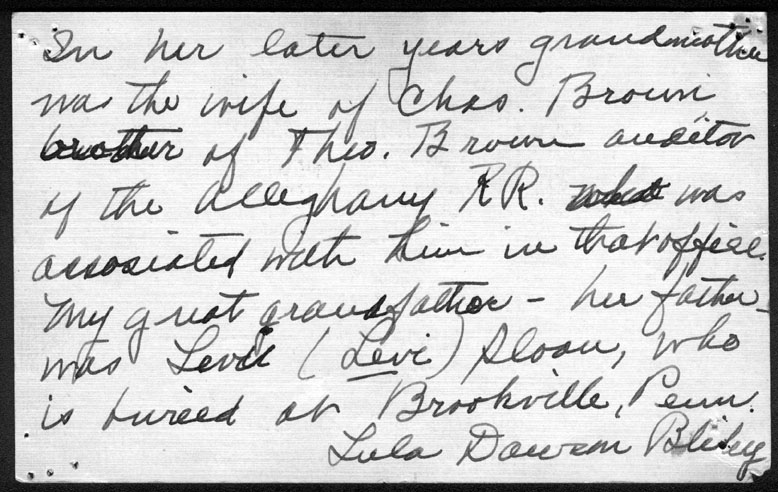 In her later years grandmother
was the wife of Chas. Brown
brother of Theo. Brown auditor
of the Alleghany RR. was
associated with him in that office.
My great grandfather - her father -
was Levi (Levi) Sloan, who
is buried at Brookville, Penn.
Lula Dawson